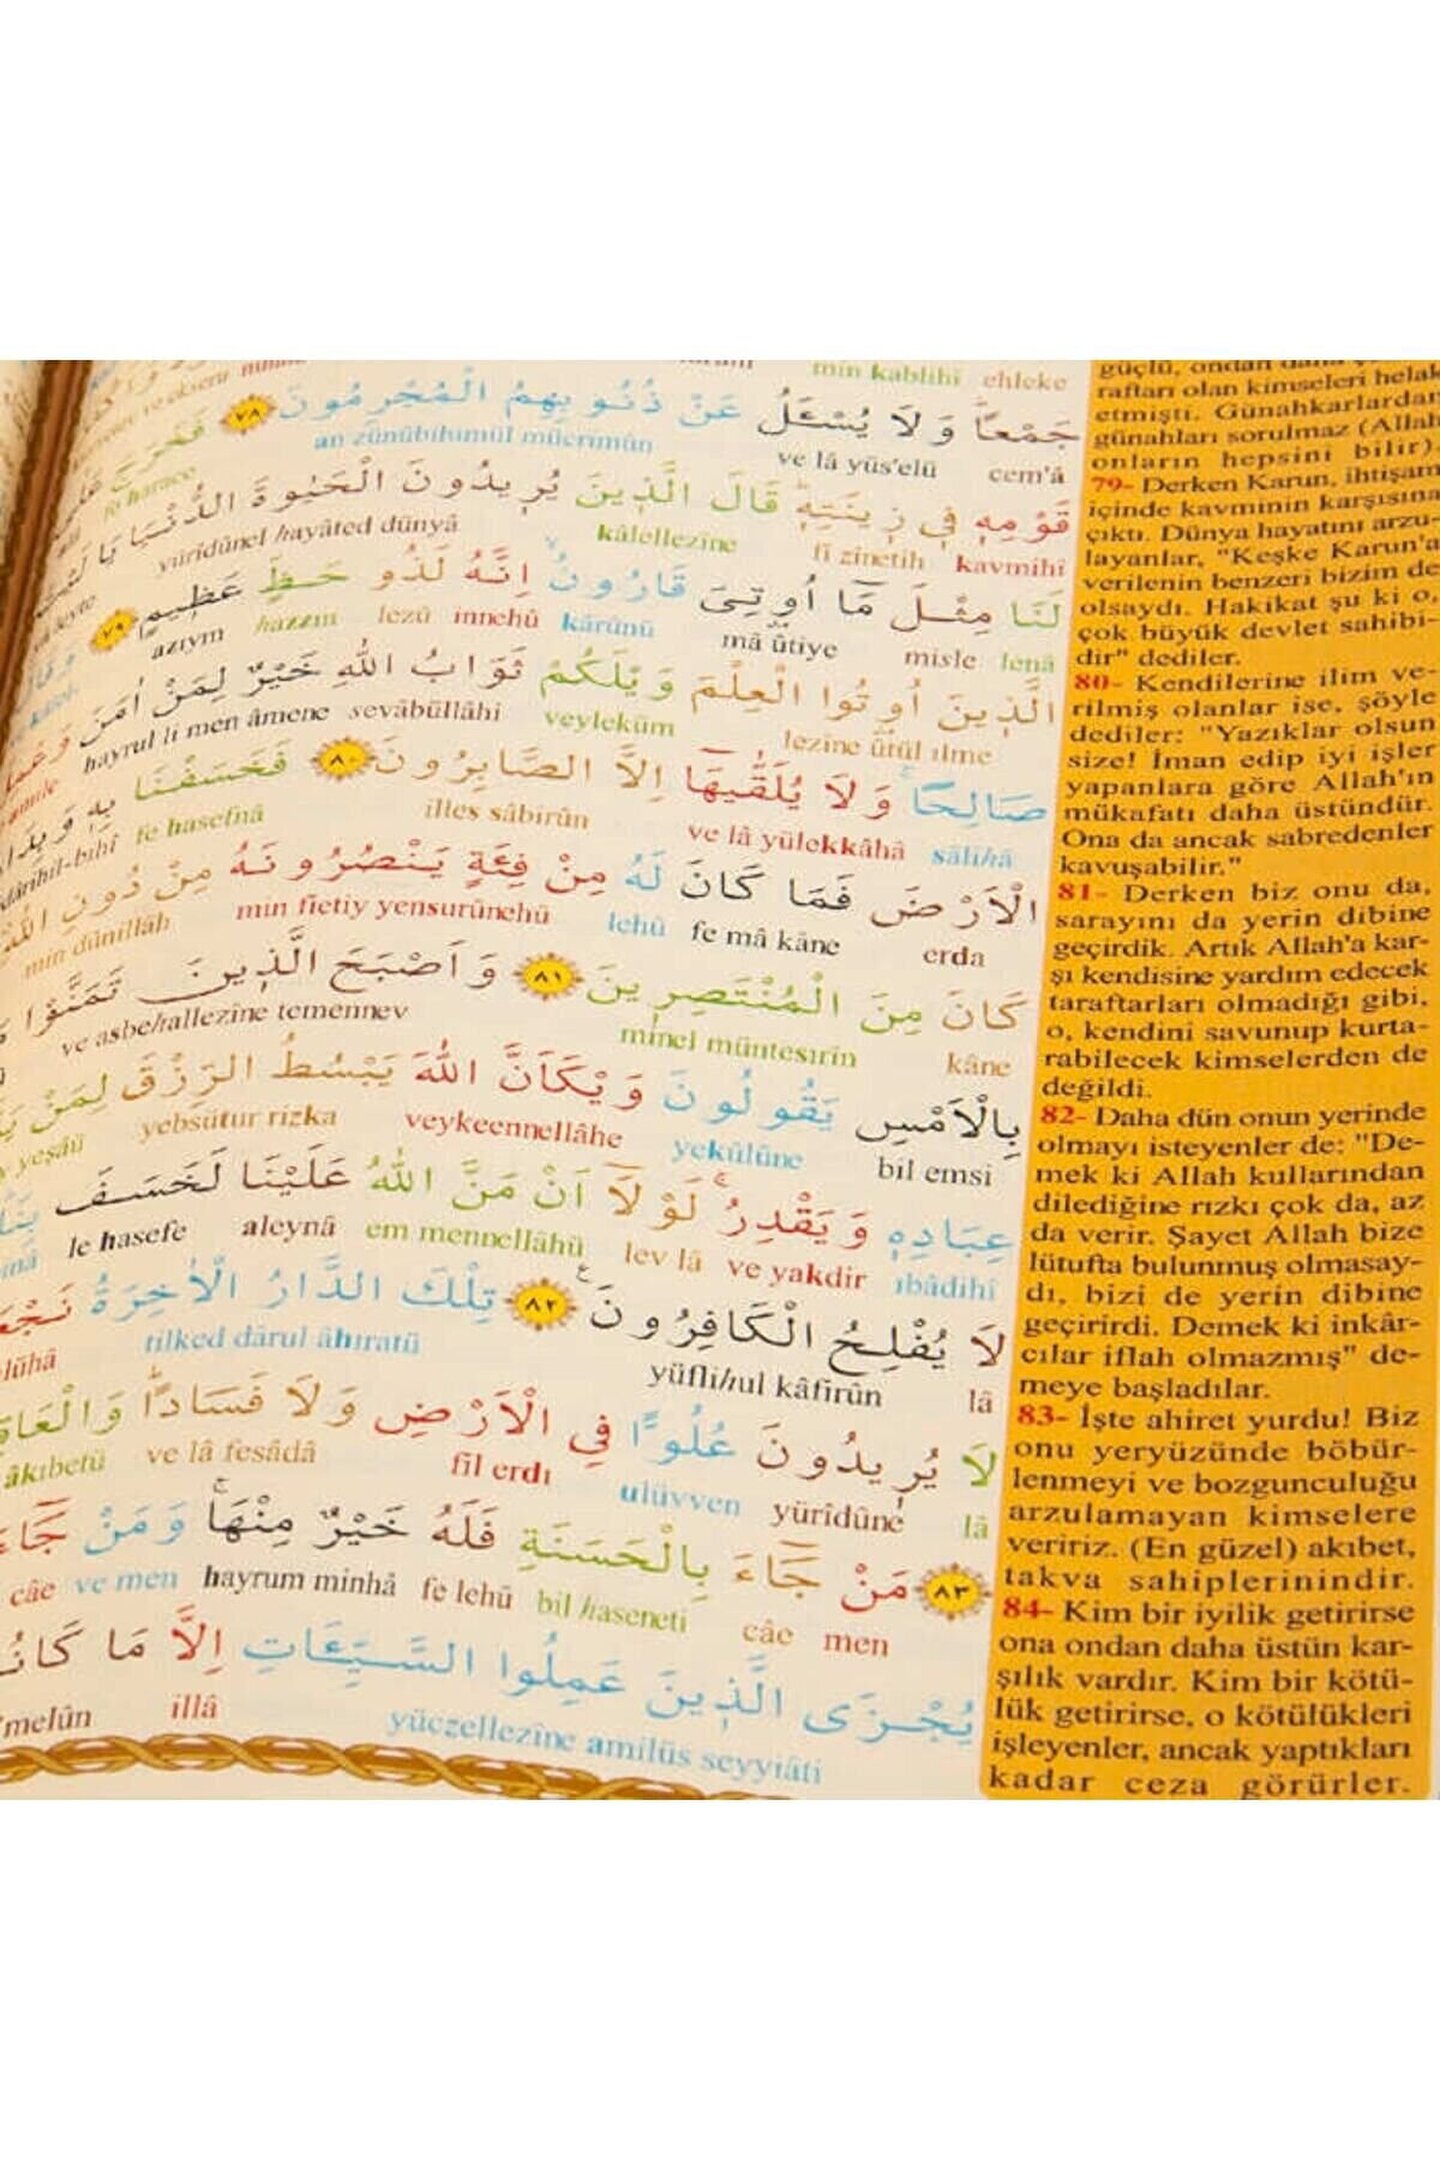 min kablihî ehleke
جَمْعًا وَلَا يُسْـَٔلُ عَنْ ذُنُوبِهِمُ الْمُجْرِمُونَ ﴿٧٨﴾ فَخَرَجَ
cem'â ve lâ yüs'elü an zünûbihimül mücrimûn fe harace
قَوْمِهٖ فٖي زٖينَتِهٖ قَالَ الَّذٖينَ يُرٖيدُونَ الْحَيٰوةَ الدُّنْيَا يَا لَيْتَ
kavmihî fî zînetih kâlellezîne yürîdûnel hayâted dünyâ
لَنَا مِثْلَ مَٓا اُو۫تِيَ قَارُونُ اِنَّهُ لَذُو حَظٍّ عَظٖيمٍ ﴿٧٩﴾
lenâ misle mâ ûtiye kârûnü innehû lezû hazzın azıym
الَّذٖينَ اُو۫تُوا الْعِلْمَ وَيْلَكُمْ ثَوَابُ اللّٰهِ خَيْرٌ لِمَنْ اٰمَنَ
lezîne ûtül ılme veyleküm sevâbüllâhi hayrul li men âmene
صَالِحًا وَلَا يُلَقّٰيهَٓا اِلَّا الصَّابِرُونَ ﴿٨٠﴾ فَخَسَفْنَا بِهٖ
sâlihâ ve lâ yülekkâhâ illes sâbirûn fe hasefnâ
الْاَرْضَ فَمَا كَانَ لَهُ مِنْ فِئَةٍ يَنْصُرُونَهُ مِنْ دُونِ اللّٰهِ
erda fe mâ kâne lehû min fietiy yensurûnehû min dûnillâh
كَانَ مِنَ الْمُنْتَصِرٖينَ ﴿٨١﴾ وَاَصْبَحَ الَّذٖينَ تَمَنَّوْا
kâne minel müntesırîn ve asbehallezîne temennev
بِالْاَمْسِ يَقُولُونَ وَيْكَاَنَّ اللّٰهَ يَبْسُطُ الرِّزْقَ لِمَنْ
bil emsi yekûlûne veykeennellâhe yebsütur rizka yeşâü
عِبَادِهٖ وَيَقْدِرُ لَوْلَٓا اَنْ مَنَّ اللّٰهُ عَلَيْنَا لَخَسَفَ
ıbâdihî ve yakdir lev lâ em mennellâhü aleynâ le hasefe
لَا يُفْلِحُ الْكَافِرُونَ ﴿٨٢﴾ تِلْكَ الدَّارُ الْاٰخِرَةُ
lâ yüflihul kâfirûn tilked dârul âhıratü
لَا يُرٖيدُونَ عُلُوًّا فِي الْاَرْضِ وَلَا فَسَادًا
lâ yürîdûne ulüvven fil erdı ve lâ fesâdâ âkıbetü
﴿٨٣﴾ مَنْ جَٓاءَ بِالْحَسَنَةِ فَلَهُ خَيْرٌ مِنْهَا وَمَنْ جَٓاءَ
men câe bil haseneti fe lehû hayrum minhâ ve men câe
يُجْزَى الَّذٖينَ عَمِلُوا السَّيِّـَٔاتِ اِلَّا مَا
yüczellezîne amilüs seyyiâti illâ
raftarı olan kimseleri helak
etmişti. Günahkarlardan
günahları sorulmaz (Allah
onların hepsini bilir).
79- Derken Karun, ihtişam
içinde kavminin karşısına
çıktı. Dünya hayatını arzu-
layanlar, "Keşke Karun'a
verilenin benzeri bizim de
olsaydı. Hakikat şu ki o,
çok büyük devlet sahibi-
dir" dediler.
80- Kendilerine ilim ve-
rilmiş olanlar ise, şöyle
dediler: "Yazıklar olsun
size! İman edip iyi işler
yapanlara göre Allah'ın
mükafatı daha üstündür.
Ona da ancak sabredenler
kavuşabilir."
81- Derken biz onu da,
sarayını da yerin dibine
geçirdik. Artık Allah'a kar-
şı kendisine yardım edecek
taraftarları olmadığı gibi,
o, kendini savunup kurta-
rabilecek kimselerden de
değildi.
82- Daha dün onun yerinde
olmayı isteyenler de: "De-
mek ki Allah kullarından
dilediğine rızkı çok da, az
da verir. Şayet Allah bize
lütufta bulunmuş olmasay-
dı, bizi de yerin dibine
geçirirdi. Demek ki inkâr-
cılar iflah olmazmış" de-
meye başladılar.
83- İşte ahiret yurdu! Biz
onu yeryüzünde böbür-
lenmeyi ve bozgunculuğu
arzulamayan kimselere
veririz. (En güzel) akıbet,
takva sahiplerinindir.
84- Kim bir iyilik getirirse
ona ondan daha üstün kar-
şılık vardır. Kim bir kötü-
lük getirirse, o kötülükleri
işleyenler, ancak yaptıkları
kadar ceza görürler.